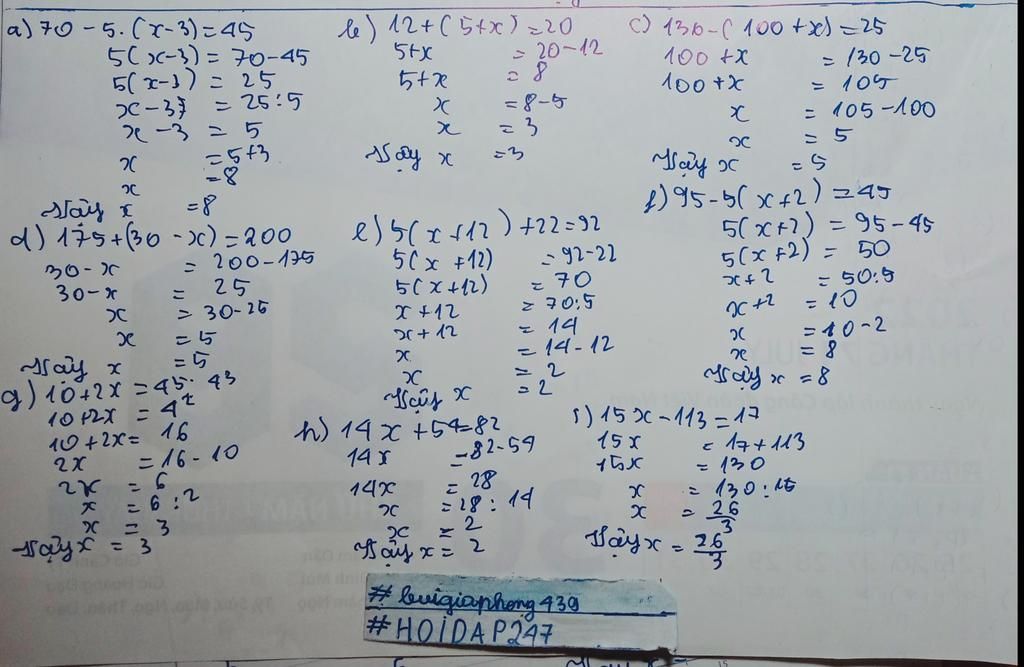 a) 70 - 5.(x-3) = 45
5(x-3) = 70-45
5(x-3) = 25
x-3 = 25:5
x-3 = 5
x = 5+3
x = 8
Vậy x = 8
b) 12+(5+x) = 20
5+x = 20-12
5+x = 8
x = 8-5
x = 3
Vậy x = 3
c) 130-(100+x) = 25
100+x = 130-25
100+x = 105
x = 105-100
x = 5
Vậy x = 5
d) 175+(30-x) = 200
30-x = 200-175
30-x = 25
x = 30-25
x = 5
Vậy x = 5
e) 5(x+12)+22=92
5(x+12) = 92-22
5(x+12) = 70
x+12 = 70:5
x+12 = 14
x = 14-12
x = 2
Vậy x = 2
f) 95-5(x+2) = 45
5(x+2) = 95-45
5(x+2) = 50
x+2 = 50:5
x+2 = 10
x = 10-2
x = 8
Vậy x = 8
g) 10+2x = 45: 43
10+2x = 4²
10+2x = 16
2x = 16-10
2x = 6
x = 6:2
x = 3
Vậy x = 3
h) 14x+54=82
14x = 82-54
14x = 28
x = 28:14
x = 2
Vậy x = 2
15x-113=17
15x = 17+113
15x = 130
x = 130:15
x = 26/3
Vậy x = 26/3
#buigiaphong439
#HOIDAP247